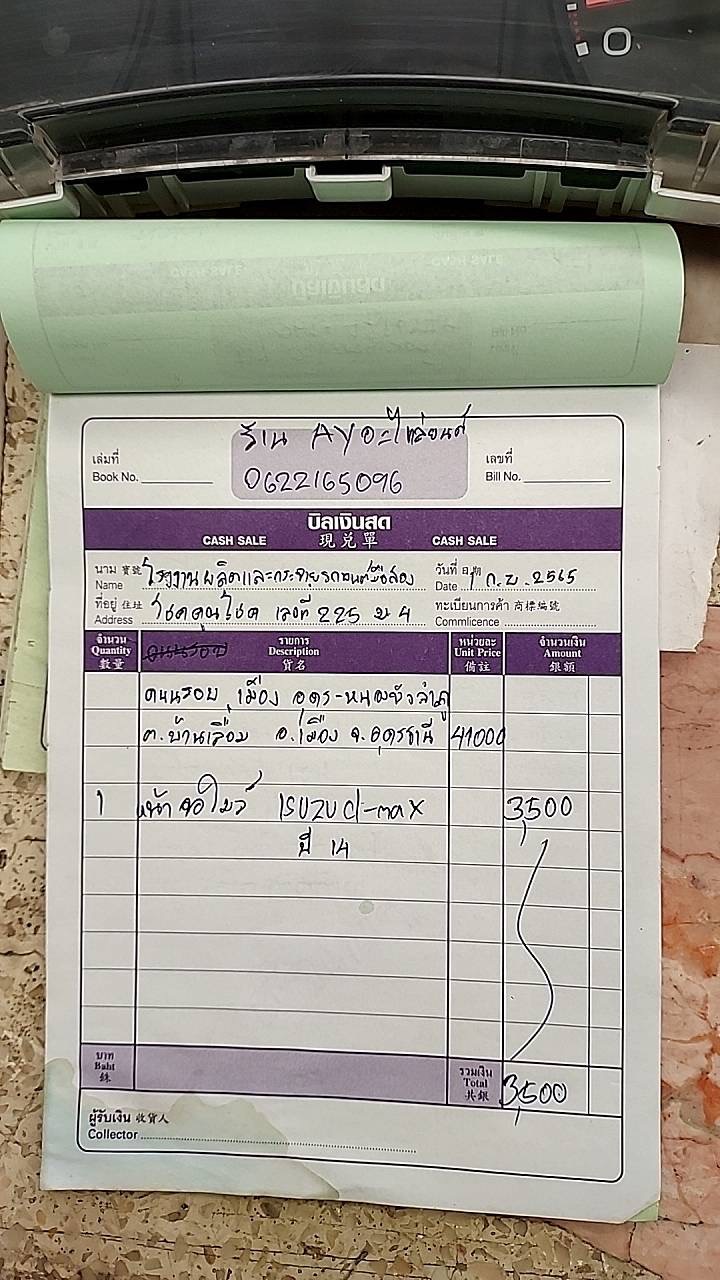 ร้าน AY อะไหล่ยนต์
เล่มที่
Book No.
0622165096
เลขที่
Bill No.
บิลเงินสด
CASH SALE 現兌單 CASH SALE
นาม 寶號 โรงงานผลิตและกระจายรถยนต์มือสอง วันที่ 日期
Name Date 1 ก.พ. 2565
ที่อยู่ 住址 โชคคูณโชค เลขที่ 225 ม 4 ทะเบียนการค้า 商標編號
Address Commlicence
จำนวน รายการ หน่วยละ จำนวนเงิน
Quantity Description Unit Price Amount
數量 貨名 備註 銀額
ถนนรอบเมือง อุดร-หนองบัวลำภู
ต.บ้านเลื่อม อ.เมือง จ.อุดรธานี 41000
1 หน้า ISUZU d-max 3,500
ปี 14
บาท รวมเงิน
Baht Total 3,500
銖 共銀
ผู้รับเงิน 收貨人
Collector